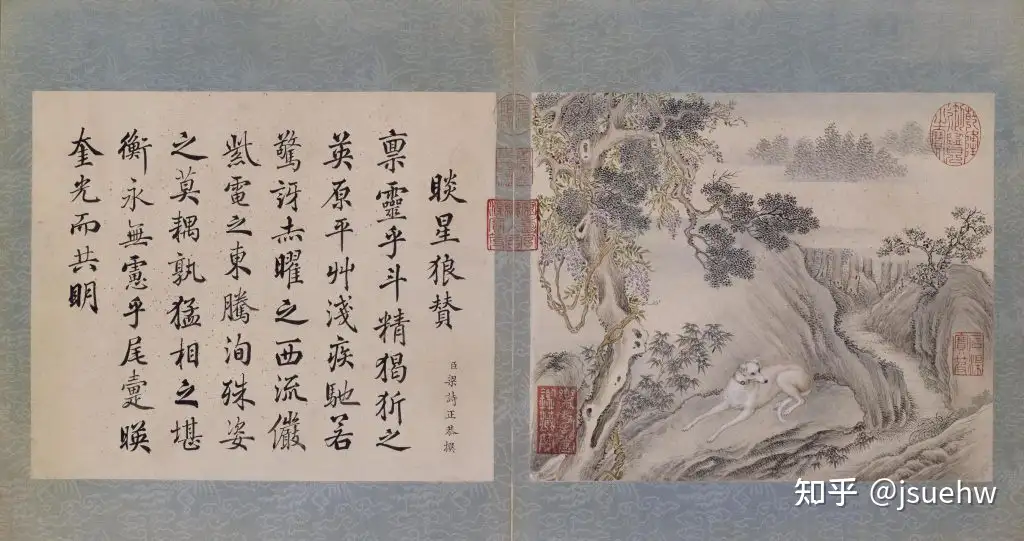 睒星狼賛
臣梁詩正恭撰
禀靈乎斗精猲之
英原平艸淺疾馳若
驚訝赤曜之西流儼
紫電之東騰洵殊姿
之莫耦孰猛相之堪
衡永無慮乎尾疐暎
奎光而共明
乾隆御覽之寶
知乎 @jsuehw